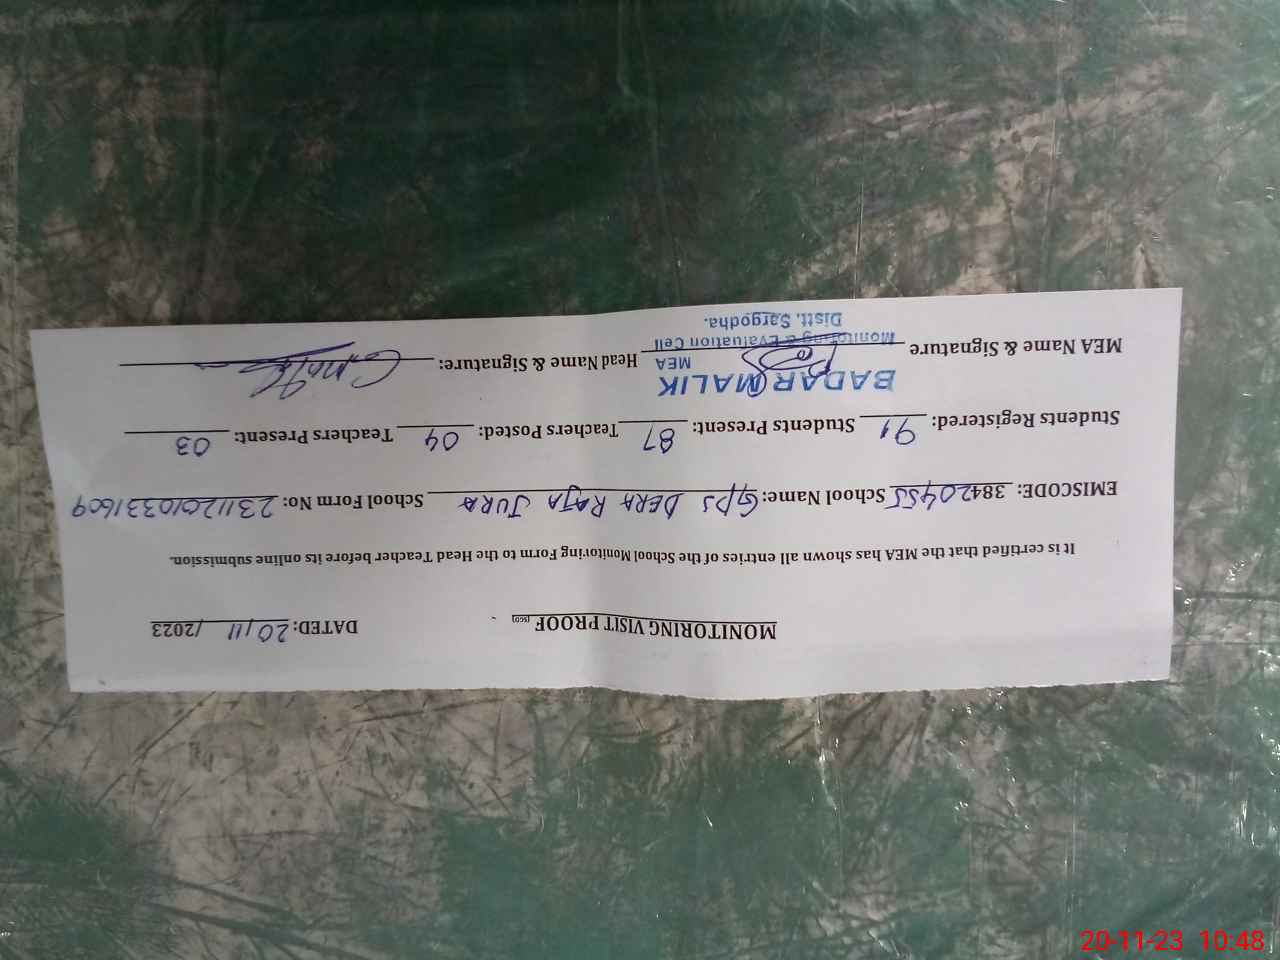 MONITORING VISIT PROOF [SGD] DATED: 20/11 /2023
It is certified that the MEA has shown all entries of the School Monitoring Form to the Head Teacher before its online submission.
EMISCODE: 38420455 School Name: GPS DERA RAJA JURA School Form No: 23112010331609
Students Registered: 91 Students Present: 87 Teachers Posted: 04 Teachers Present: 03
BADAR MALIK
MEA
MEA Name & Signature Head Name & Signature:
Monitoring & Evaluation Cell
Distt. Sargodha.
20-11-23 10:48